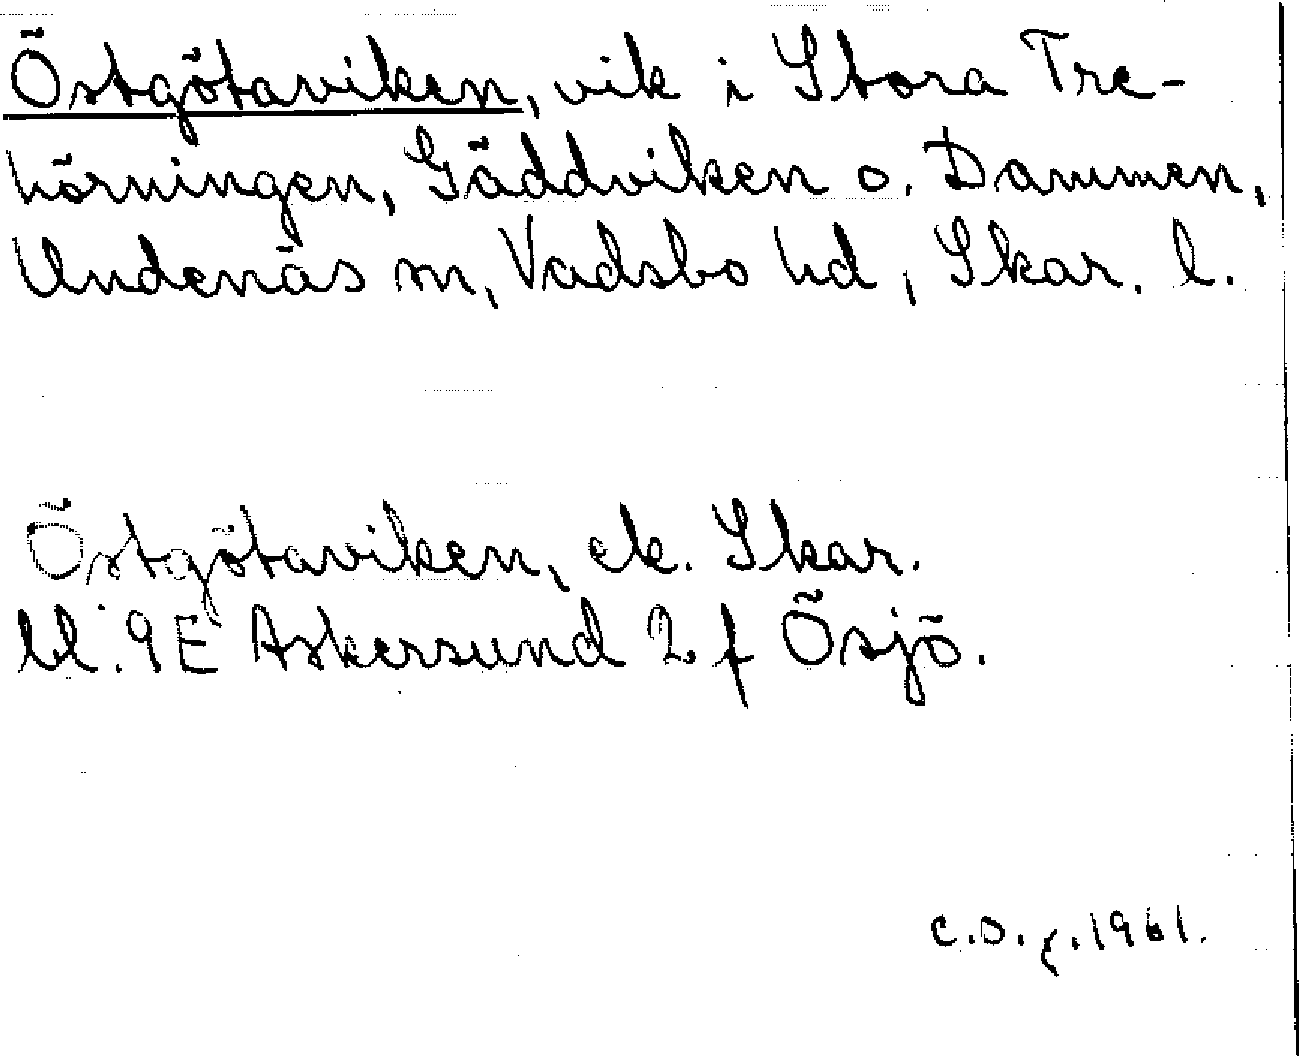 Östgötaviken, vik i Stora Tre-
hörningen, Gäddviken o. Dammen,
Undenäs sn, Vadsbo hd, Skar. l.
Östgötaviken, ek. Skar.
bl. 9E Askersund 2 f Ösjö.
C.O. f. 1961.